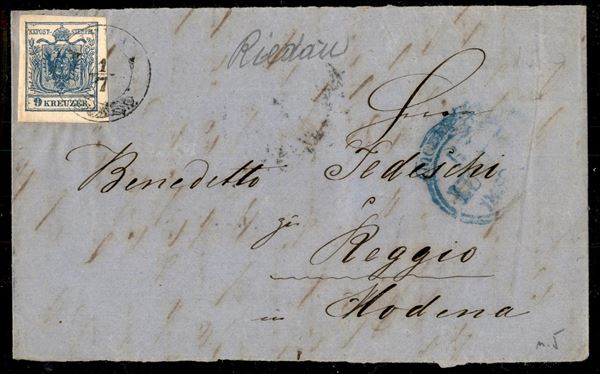 KKPOST-STEMPEL
9 KREUZER
1
7
Riedau
Herrn
Benedetto Tedeschi
zu
Reggio
in Modena
n. 5